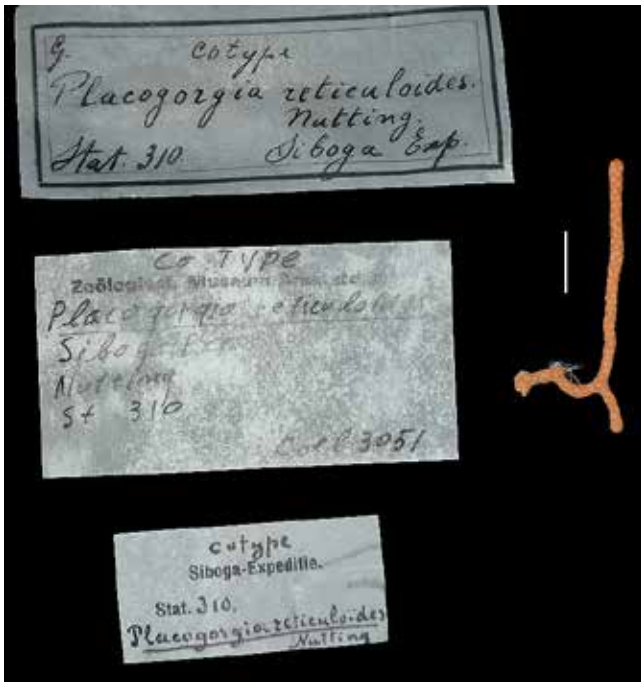 G. cotype
Placogorgia reticuloides.
Nutting.
Stat. 310 Siboga Exp.
Co Type
Zoölogisch Museum Amsterdam
Placogorgia reticuloides
Siboga
Nutting
St 310
Coel 3051
cotype
Siboga-Expeditie.
Stat. 310.
Placogorgia reticuloides
Nutting